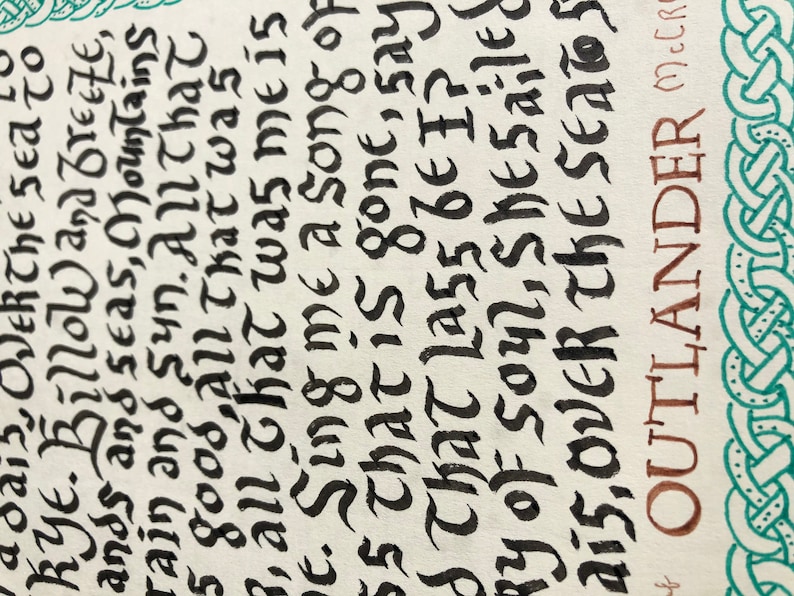 a dais, Over the sea to
kye. Billow and breeze,
ands and seas, Mountains
rain and Sun. All that
s good, all that was
, all that was me is
e. Sing me a song of
ss that is gone, say
d that lass be I?
ry of soul, She sailed
ais, over the sea to S
OUTLANDER McCr